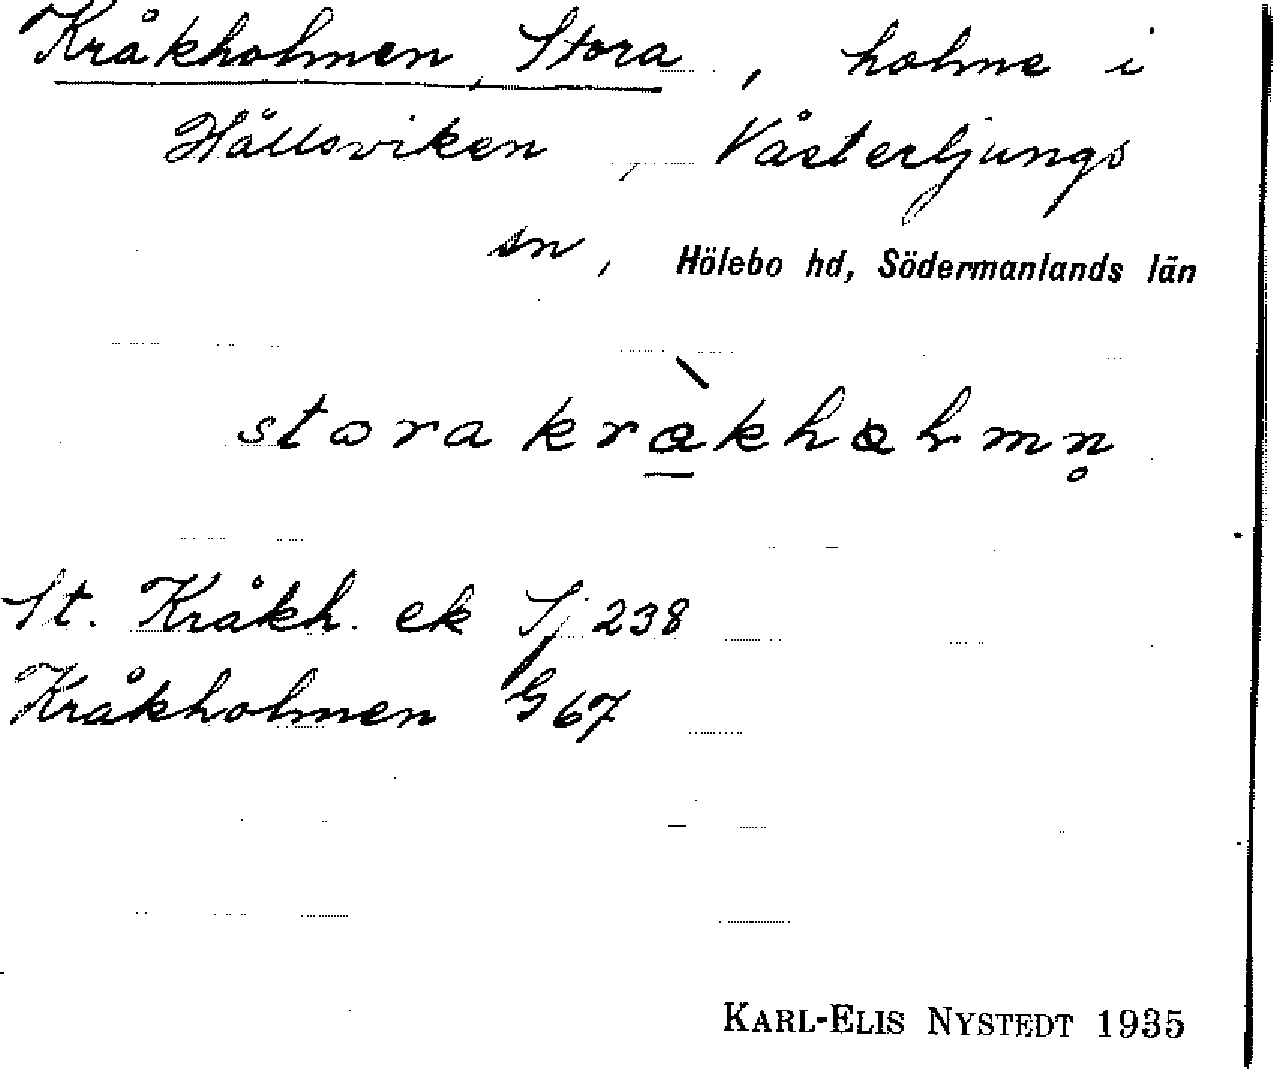 Kråkholmen, Stora, holme i
Hållsviken, Västerljungs
sn, Hölebo hd, Södermanlands län
stora kràkhalmn̥
St. Kråkh. ek Sj 238
Kråkholmen G 67
KARL-ELIS NYSTEDT 1935